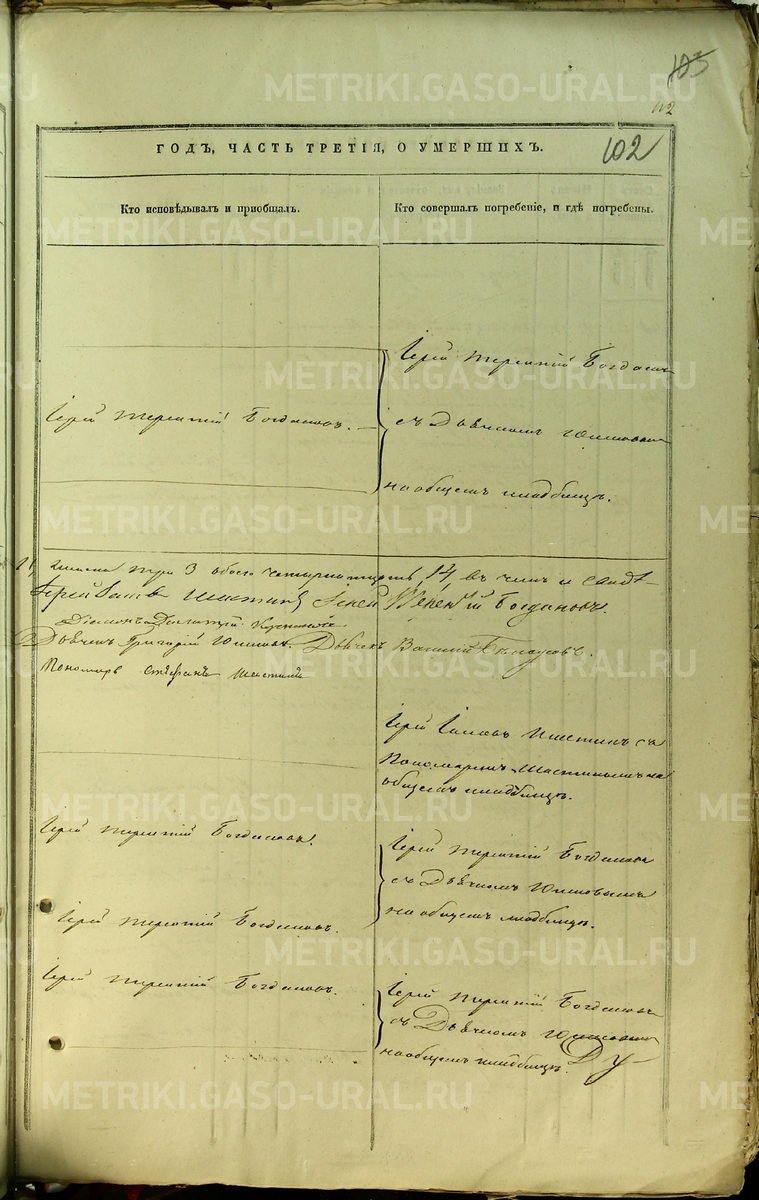 103
112
102
ГОДЪ, ЧАСТЬ ТРЕТІЯ, О УМЕРШИХЪ.
Кто исповѣдывалъ и пріобщалъ.
Кто совершалъ погребеніе, и гдѣ погребены.
Іерей Терентій Богдановъ
Іерей Терентій Богдановъ.
съ Дьячкомъ
на общемъ кладбищѣ.
три 3 обоего четырнатцать 14 въ чемъ и свидѣ-
Іерей Іаковъ Шастинъ Іерей Терентій Богдановъ.
Діаконъ
Дьячекъ Григорій Дьячекъ Василій
Пономарь Стефанъ Шастинъ
Іерей Іаковъ Шастинъ съ
Пономаремъ Шастинымъ на
общемъ кладбищѣ.
Іерей Терентій Богдановъ.
Іерей Терентій Богдановъ
съ Дьячкомъ
на общемъ кладбищѣ.
Іерей Терентій Богдановъ.
Іерей Терентій Богдановъ.
Іерей Терентій Богдановъ
съ Дьячкомъ
на общемъ кладбищѣ.
METRIKI.GASO-URAL.RU